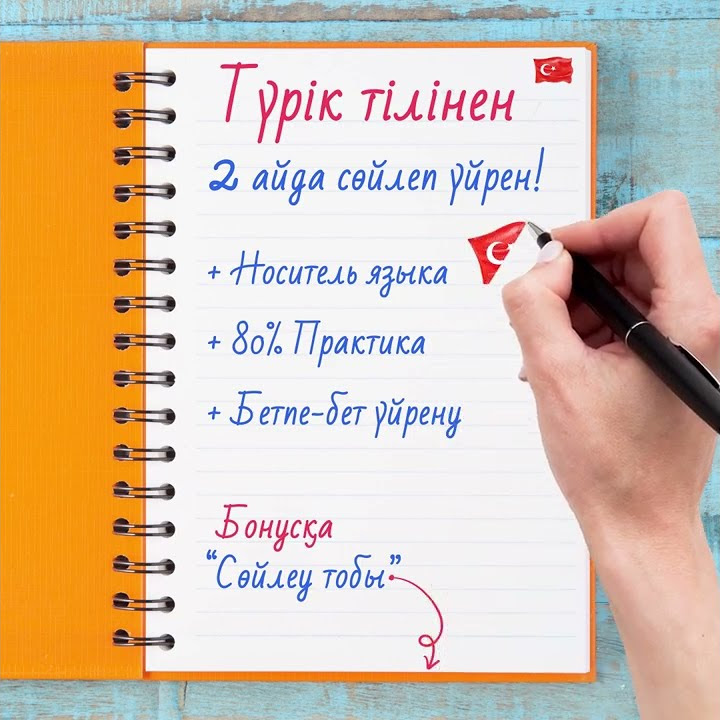 Түрік тілінен
2 айда сөйлеп үйрен!
+ Носитель языка
+ 80% Практика
+ Бетпе-бет үйрену
Бонусқа
“Сөйлеу тобы”